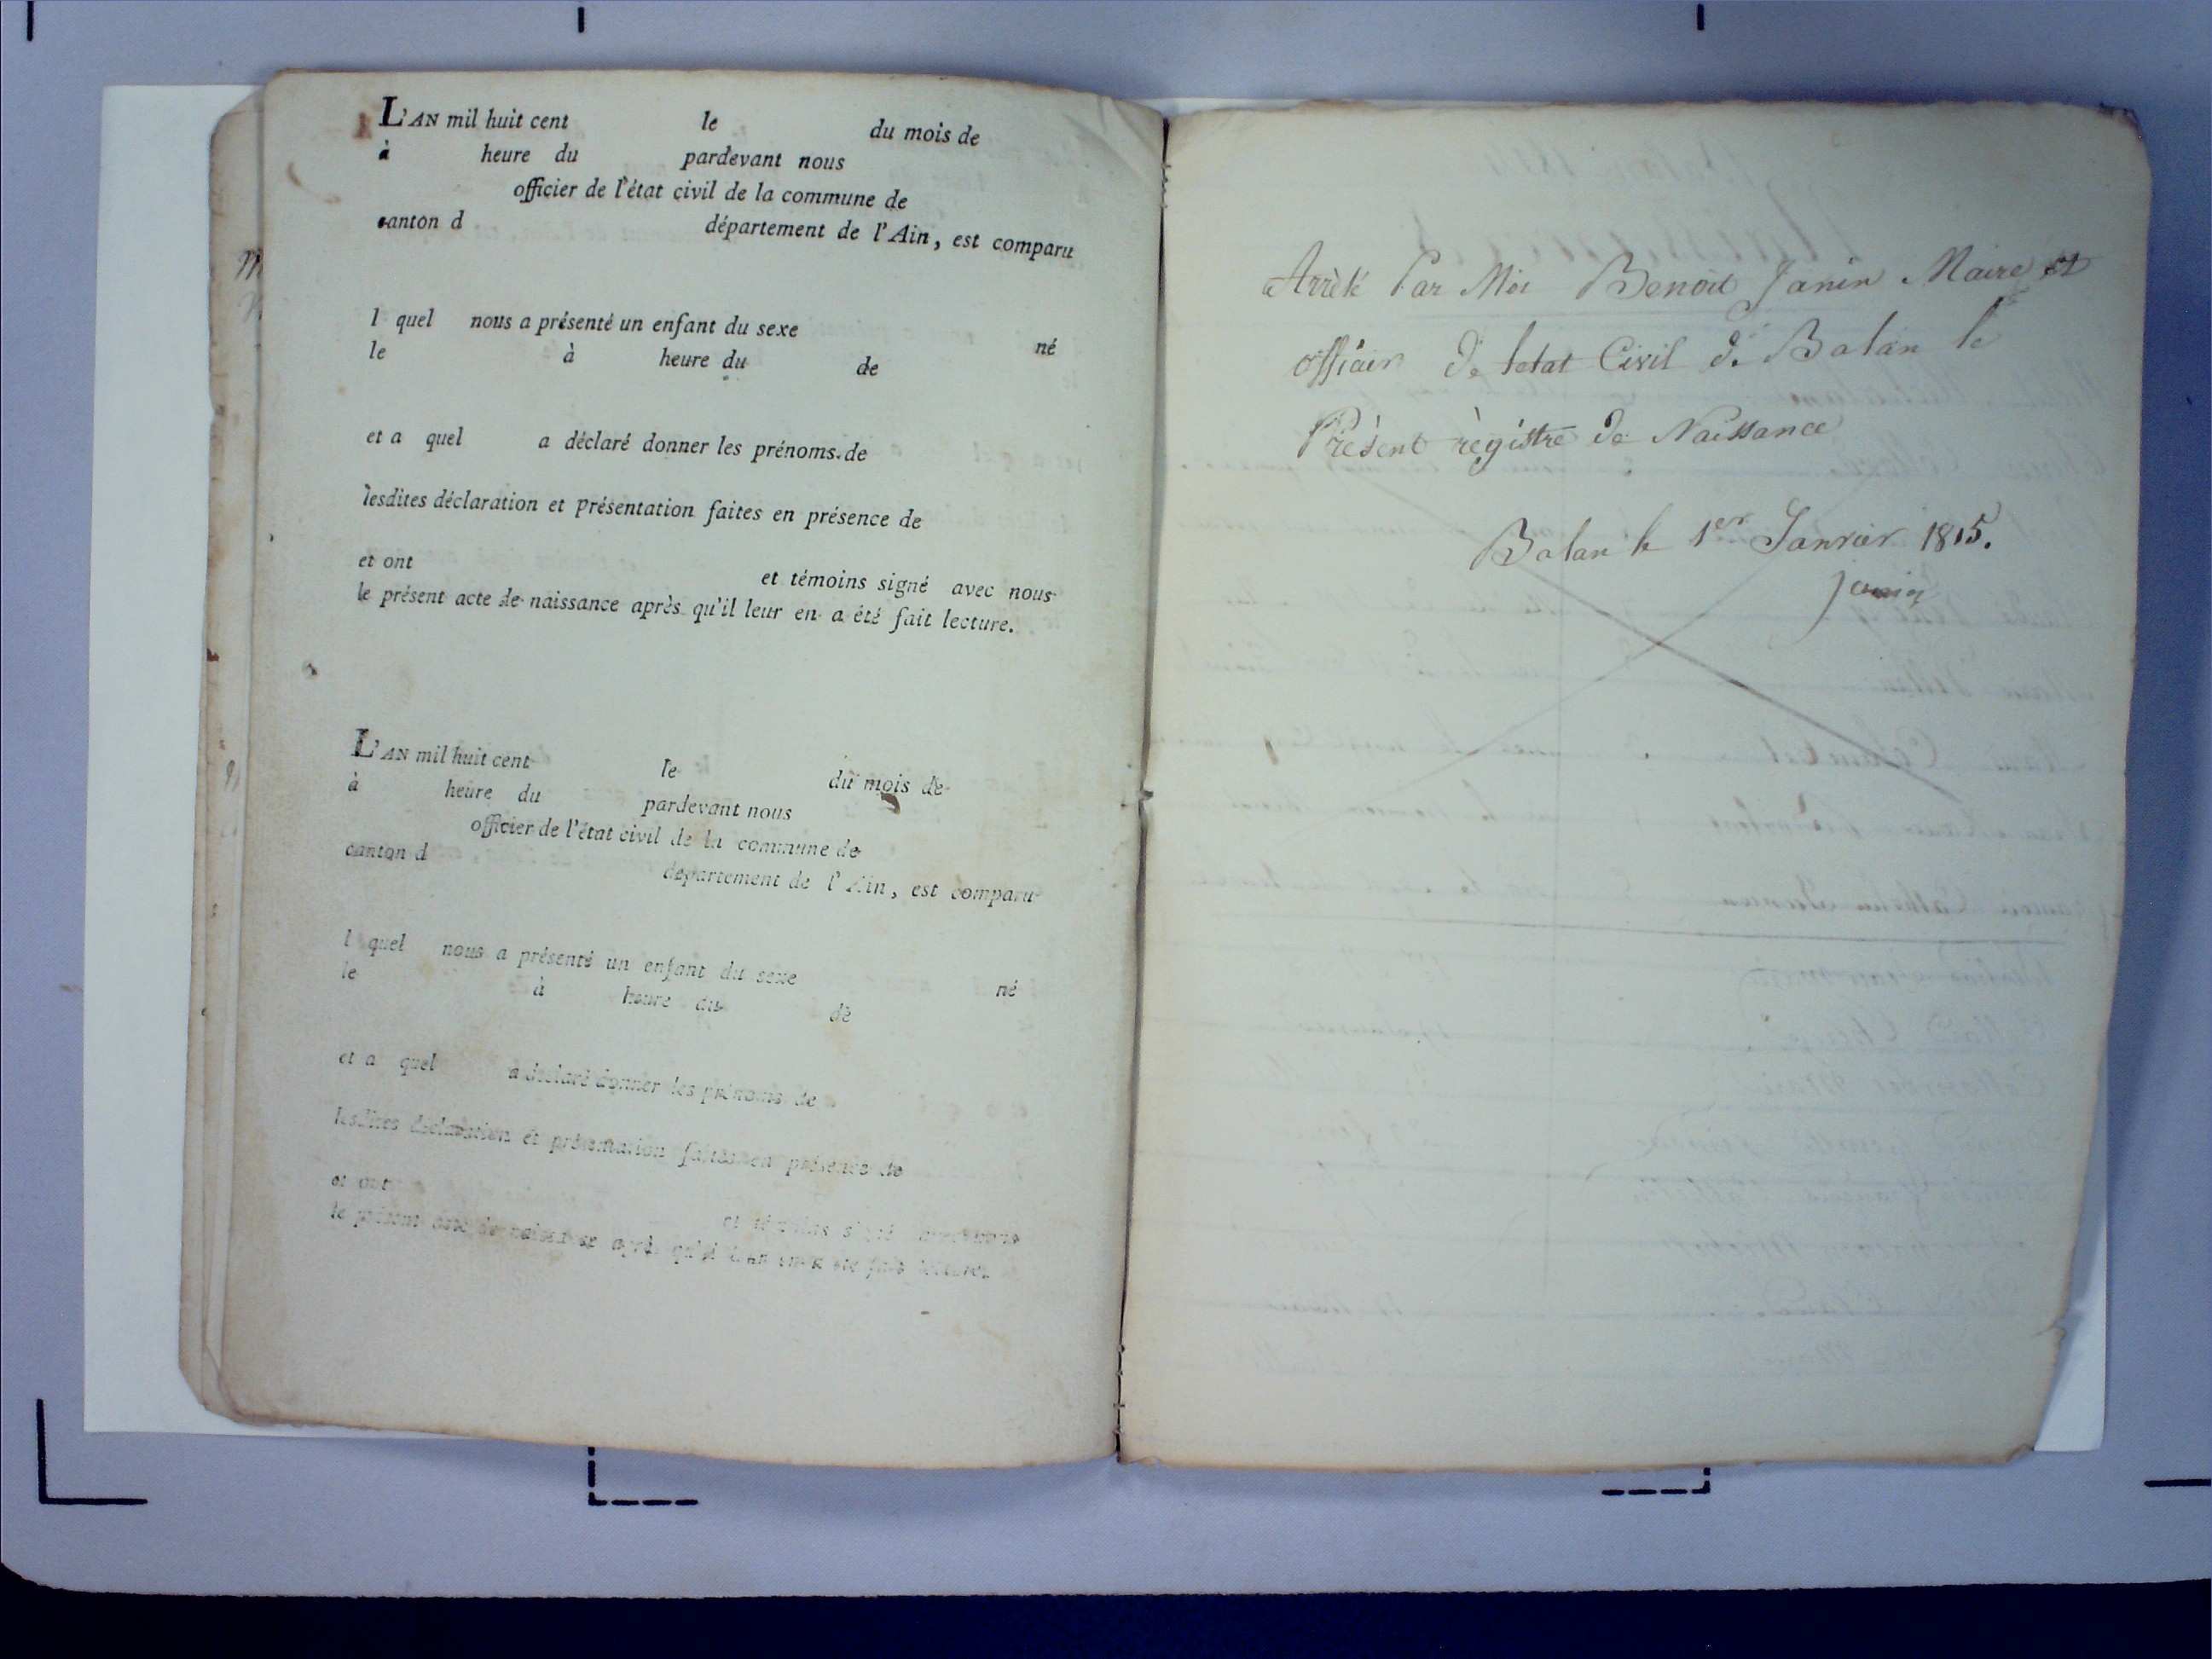 L'AN mil huit cent le du mois de
à heure du pardevant nous
officier de l'état civil de la commune de
canton d département de l'Ain, est comparu
l quel nous a présenté un enfant du sexe né
le à heure du de
et a quel a déclaré donner les prénoms de
lesdites déclaration et présentation faites en présence de
et ont et témoins signé avec nous
le présent acte de naissance après qu'il leur en a été fait lecture.
L'AN mil huit cent le du mois de
à heure du pardevant nous
officier de l'état civil de la commune de
canton d département de l'Ain, est comparu
l quel nous a présenté un enfant du sexe né
le à heure du de
et a quel a déclaré donner les prénoms de
lesdites déclaration et présentation faites en présence de
et ont et témoins signé avec nous
le présent acte de naissance après qu'il leur en a été fait lecture.
Arrèté Par Moi Benoit Janin Maire et
officier De letat Civil de Balan le
Présent règistre de Naissance
Balan le 1er Janvier 1815.
janin